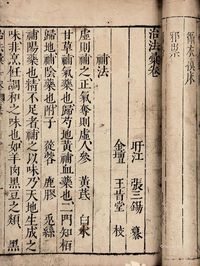 循衣摸床
邪祟
治法彙卷
盱江 張三錫 纂
金壇 王肯堂 校
補法
虛則補之正氣奪則虛人參 黃芪 白朮
甘草補氣藥也歸芍地黃補血藥也二門知栢
歸地補陰藥也附子 蓯蓉 鹿膠 兎絲
補陽藥也精不足者補之以味乃天地生成之
味非烹飪調和之味也如羊肉黑豆之類黑